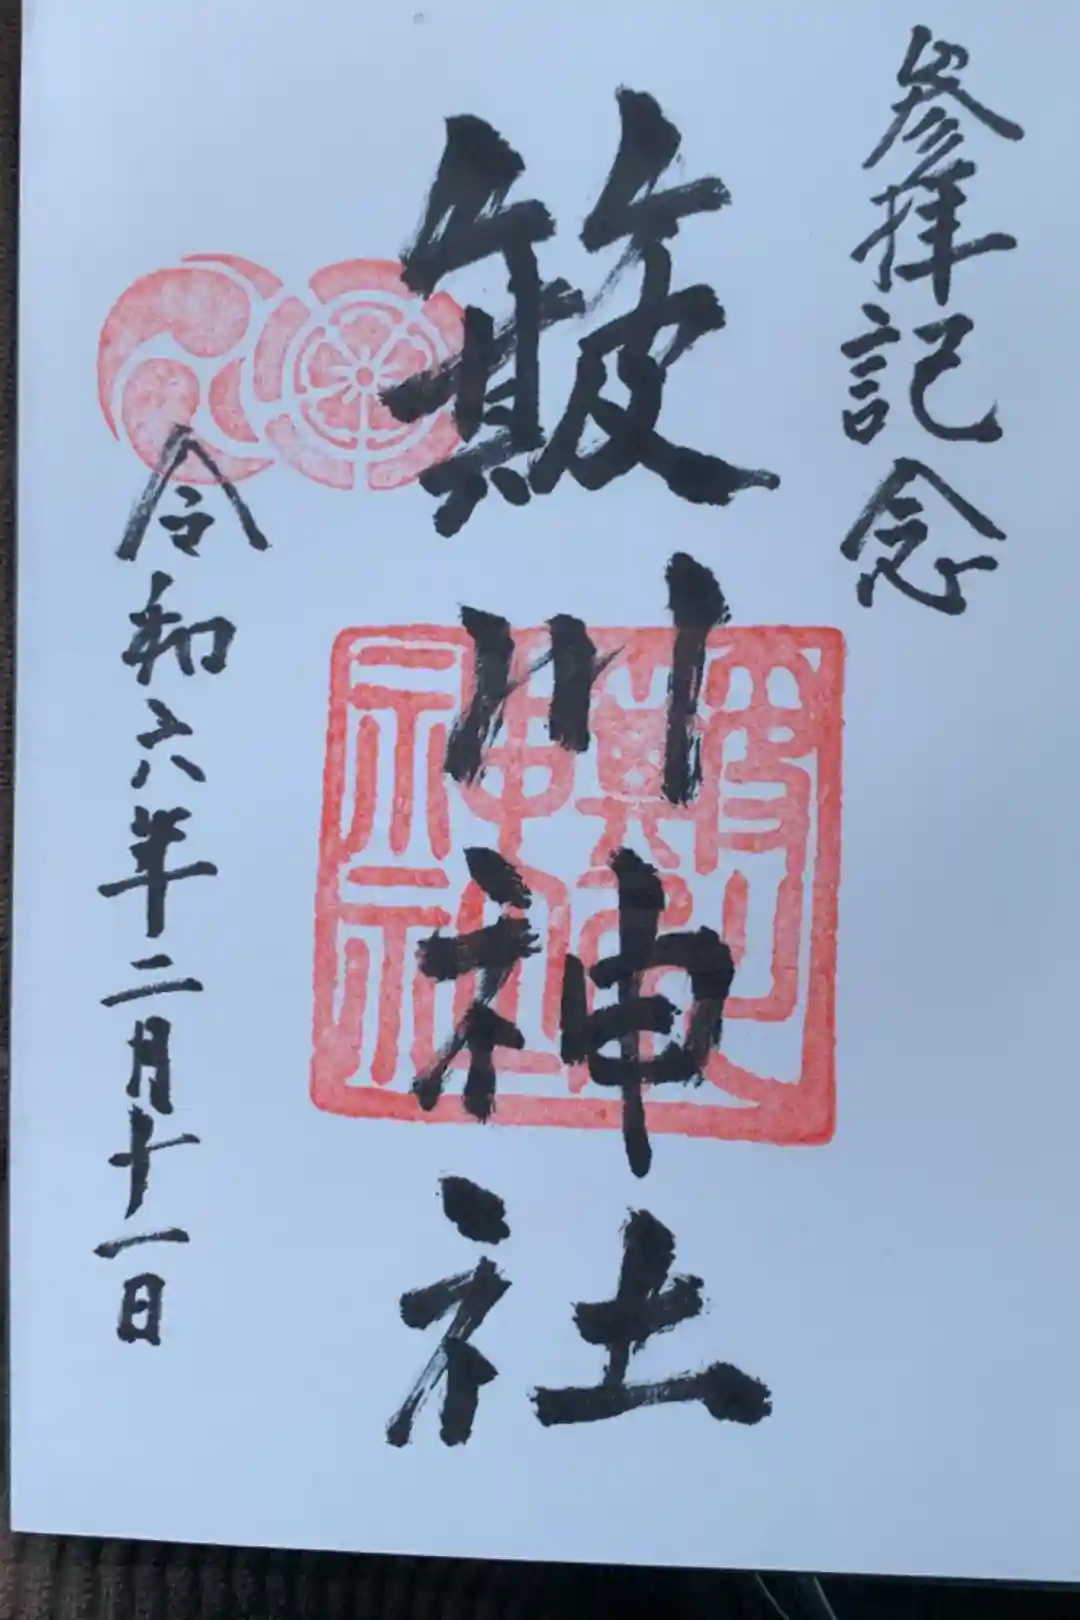 參拝記念
簸川神社
簸川神社
令和六年二月十一日